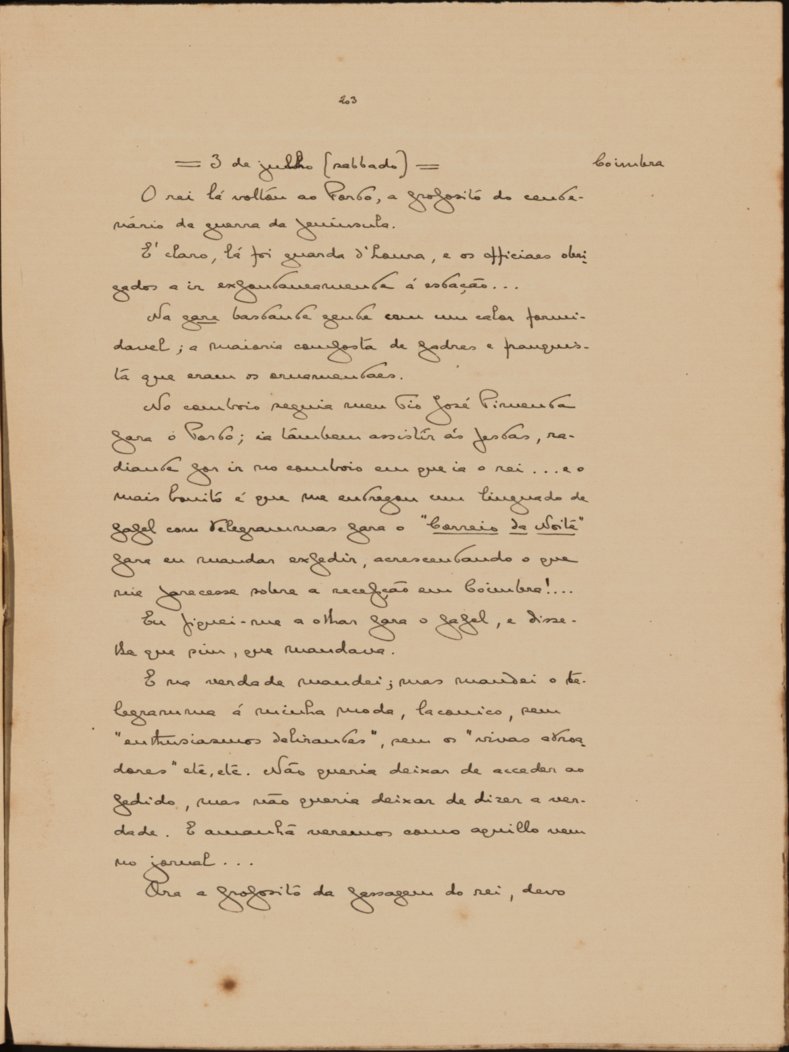 203
= 3 de julho (sabbado) = Coimbra
O rei lá voltou ao Porto, a proposito do cente-
nário da guerra da peninsula.
E' claro, lá foi guarda d'honra, e os officiaes obri-
gados a ir expontaneamente á estação...
Na gare bastante gente com um calor formi-
davel; a maioria composta de padres e franquis-
tas que eram os ornamentões.
No comboio seguia meu tio José Pimenta
para o Porto; ia tâmbem assistir ás festas, ra-
diante por ir no comboio em que ia o rei... e o
mais bonito é que me entregou um linguado de
papel com telegrammas para o "Correio da Noite"
para eu mandar expedir, acrescentando o que
me parecesse sobre a recepção em Coimbra!...
Eu fiquei-me a olhar para o papel, e disse-
lhe que sim, que mandava.
E na verdade mandei; mas mandei o te-
legramma á minha moda, laconico, sem
"enthusiasmos delirantes", sem os "vivas atroa-
dores" etc, etc. Não queria deixar de acceder ao
pedido, mas não queria deixar de dizer a ver-
dade. E amanhã veremos como aquillo vem
no jornal...
Ora a proposito da passagem do rei, devo